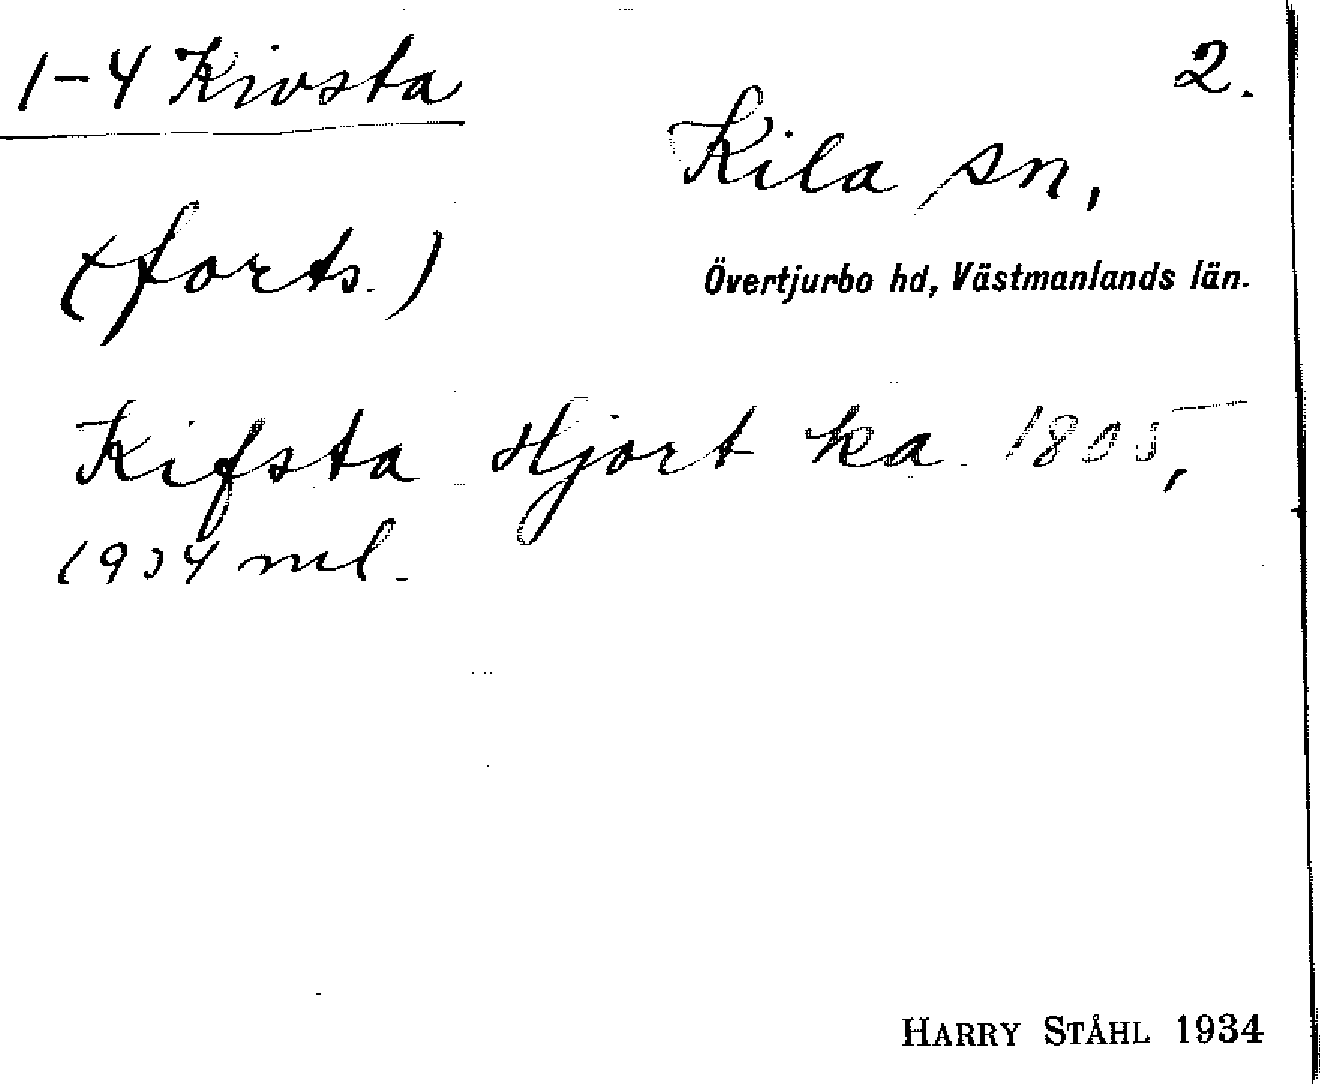 1-4 Kivsta
2.
Kila sn,
(forts.)
Övertjurbo hd, Västmanlands län.
Kifsta Hjort ka. 1805,
1934 ml.
HARRY STÅHL 1934